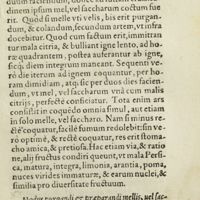 dinem ipsum mel, vel saccharum coctum fue
rit. Quod si melle vti velis, bis erit purgan-
dum, & colandum, secundum artem, vt infra
docebitur. Quod cum factum erit, immittan
tur mala citria, & bulliant igne lento, ad ho-
ræ quadrantem, postea auferantur ab igne,
sicq; diem integrum maneant. Sequenti ve-
rò die iterum ad ignem coquuntur, per ho-
ram dimidiam, atq; sic per duos dies facien-
dum, vt mel, vel saccharum vnà cum malis
citrijs, perfectè consiciatur. Tota enim ars
consistit in coquẽdo omnia simul, aut etiam
in solo melle, vel saccharo. Nam si minus re-
ctè coquatur, facilè fumum redolebit: sin ve-
rò optimè, & rectè coquatur, res erit stoma-
cho, amica, & pretiosa. Hac etiam via, & ratio
ne, alij fructus condiri queunt, vt mala Persi-
ca, matura, integra, limonia, arantia, poma,
nuces virides immaturæ, & earum nuclei, &
similia pro diuersitate fructuum.
Modus purgandi et præparandi mellis, vel sac-